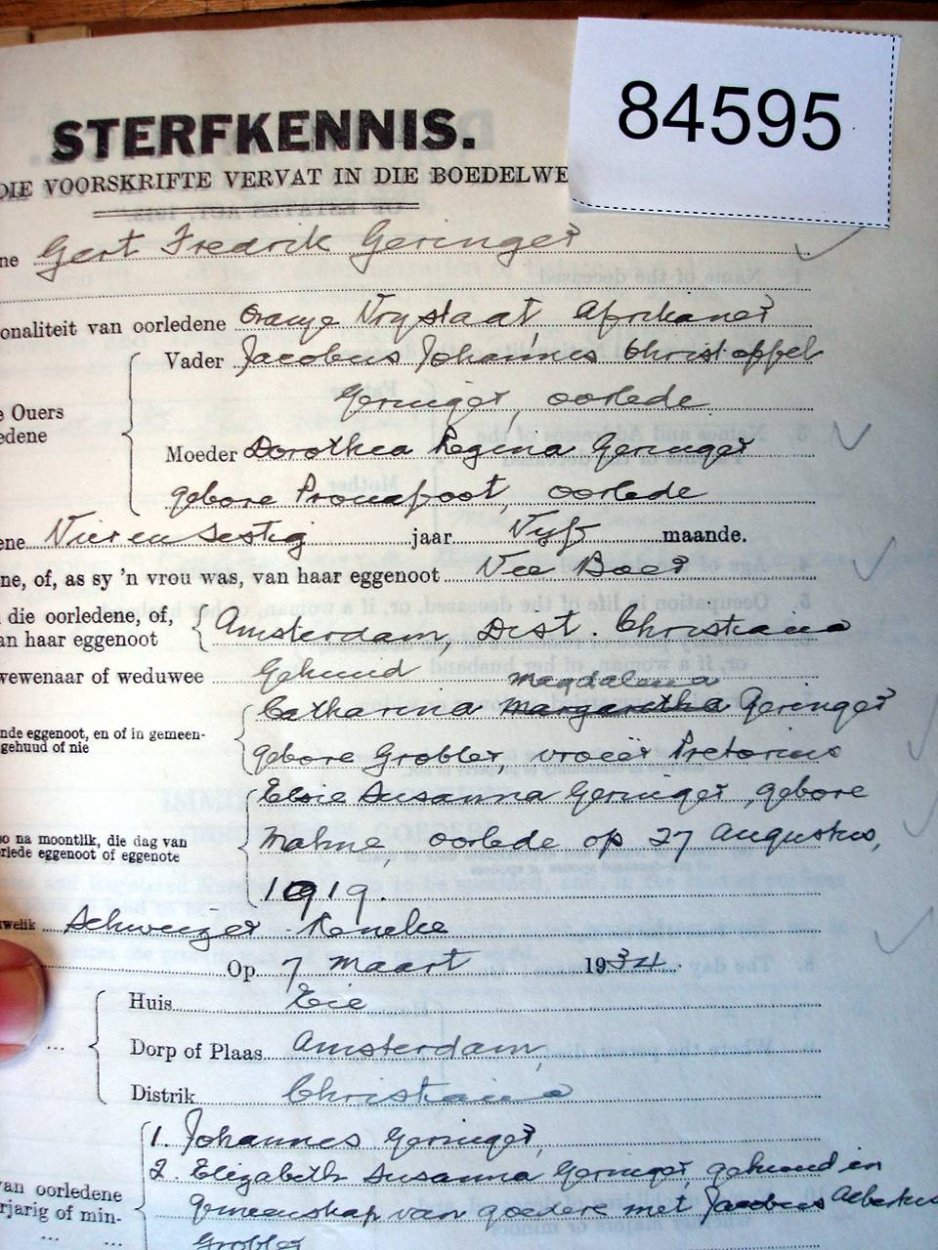 84595
STERFKENNIS.
DIE VOORSKRIFTE VERVAT IN DIE BOEDELWE
ne Gert Fredrik Geringer
onaliteit van oorledene Oranje Vrystaat, Afrikaner
Vader Jacobus Johannes Christoffel
e Ouers
edene
Geringer, oorlede
Moeder Dorothea Regina Geringer
gebore Proudfoot, oorlede
ene Vier en sestig jaar Vyf maande.
ne, of, as sy 'n vrou was, van haar eggenoot Vee Boer
die oorledene, of,
an haar eggenoot Amsterdam, Dist. Christiana
wewenaar of weduwee Gehuud
Magdalena
Catharina Margaretha Geringer
nde eggenoot, en of in gemeen-
gehuud of nie
gebore Grobler, vroeër Pretorius
Elsie Susanna Geringer, gebore
so na moontlik, die dag van
rlede eggenoot of eggenote
oorlede op 27 Augustus,
1919.
welik Schweizer Reneke
Op 7 Maart 1934.
Huis
Dorp of Plaas Amsterdam,
Distrik Christiana
1. Johannes Geringer,
2. Elizabeth Susanna Geringer, gehuud in
van oorledene
rjarig of min-
gemeenskap van goedere met Jacobus Albertus
Grobler